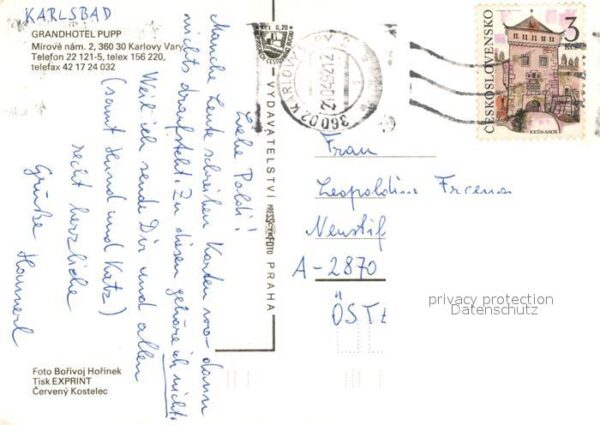 KARLSBAD
GRANDHOTEL PUPP
Mírové nám. 2, 360 30 Karlovy Vary
Telefon 22 121-5, telex 156 220,
telefax 42 17 24 032
Liebe Poldi!
Manche Leute schreiben Karten wo dann
nichts draufsteht. Zu diesen gehöre ich nicht.
Weil ich sende Dir und allen
(samt Hund und Katz)
recht herzliche
Grüße
Foto Bořivoj Hořínek
Tisk EXPRINT
Červený Kostelec
Kčs 0,20
VYDAVATELSTVÍ PRESSFOTO PRAHA
360 02 KARLOVY VARY 2
ČESKOSLOVENSKO
3
Kčs
Frau
Leopoldine
Neustif
A-2870
ÖSTE
privacy protection
Datenschutz